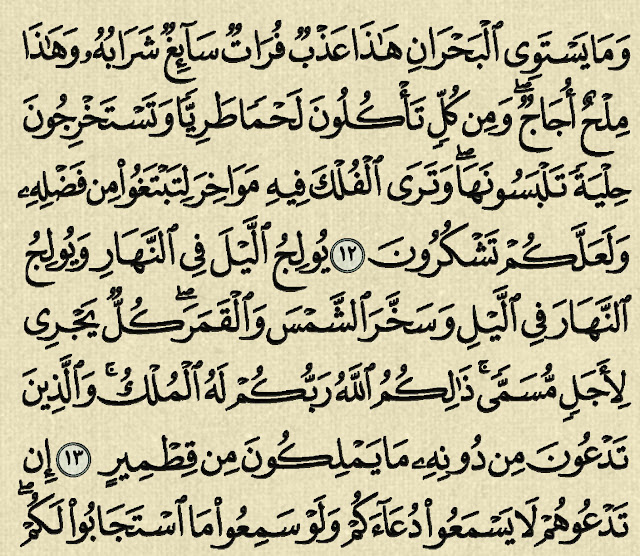 وَمَا يَسْتَوِى ٱلْبَحْرَانِ هَـٰذَا عَذْبٌ فُرَاتٌ سَآئِغٌ شَرَابُهُۥ وَهَـٰذَا
مِلْحٌ أُجَاجٌ ۖ وَمِن كُلٍّ تَأْكُلُونَ لَحْمًا طَرِيًّا وَتَسْتَخْرِجُونَ
حِلْيَةً تَلْبَسُونَهَا ۖ وَتَرَى ٱلْفُلْكَ فِيهِ مَوَاخِرَ لِتَبْتَغُوا۟ مِن فَضْلِهِۦ
وَلَعَلَّكُمْ تَشْكُرُونَ ١٢ يُولِجُ ٱلَّيْلَ فِى ٱلنَّهَارِ وَيُولِجُ
ٱلنَّهَارَ فِى ٱلَّيْلِ وَسَخَّرَ ٱلشَّمْسَ وَٱلْقَمَرَ ۖ كُلٌّ يَجْرِى
لِأَجَلٍ مُّسَمًّى ۚ ذَٰلِكُمُ ٱللَّهُ رَبُّكُمْ لَهُ ٱلْمُلْكُ ۚ وَٱلَّذِينَ
تَدْعُونَ مِن دُونِهِۦ مَا يَمْلِكُونَ مِن قِطْمِيرٍ ١٣ إِن
تَدْعُوهُمْ لَا يَسْمَعُوا۟ دُعَآءَكُمْ وَلَوْ سَمِعُوا۟ مَا ٱسْتَجَابُوا۟ لَكُمْ ۖ